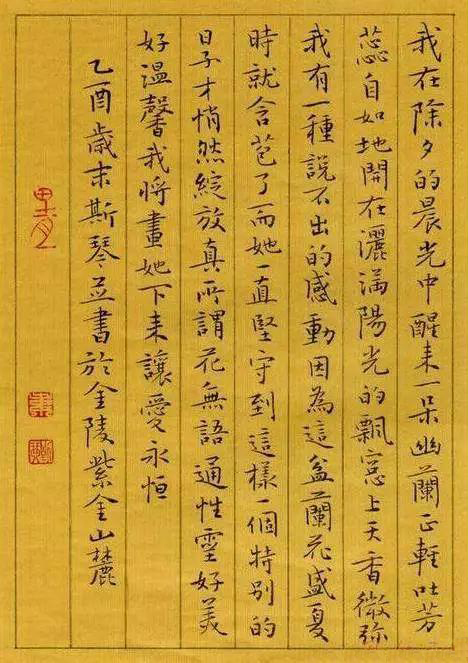 我在除夕的晨光中醒来一朵幽蘭正輕吐芳
蕊自如地開在灑滿陽光的飄窓上天香微弥
我有一種說不出的感動因為這盆蘭花盛夏
時就含苞了而她一直堅守到這樣一個特別的
日子才悄然綻放真所謂花無語通性靈好美
好温馨我將畫她下来讓愛永恒
乙酉歲末斯琴並書於金陵紫金山麓